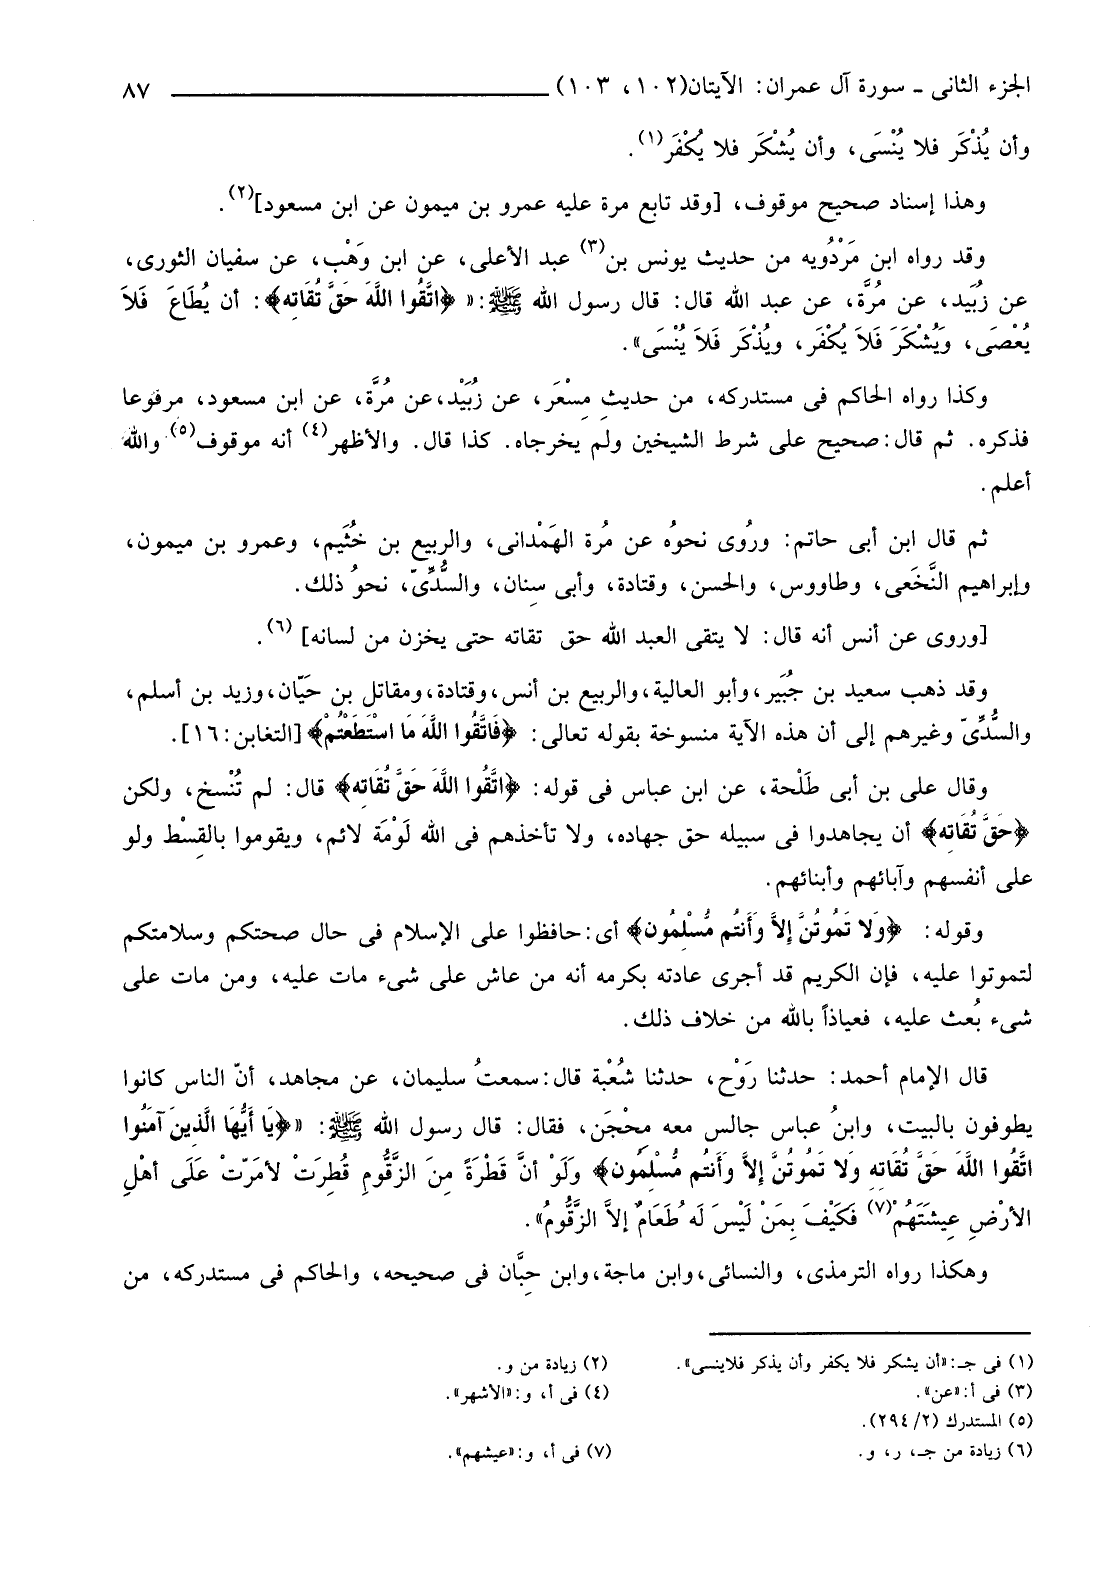 الجزء الثانى ـ سورة آل عمران: الآيتان(١٠٢، ١٠٣) ٨٧
وأن يُذْكَر فلا يُنْسَى، وأن يُشْكَر فلا يُكْفَر(١).
وهذا إسناد صحيح موقوف، [وقد تابع مرة عليه عمرو بن ميمون عن ابن مسعود](٢).
وقد رواه ابن مَرْدُويه من حديث يونس بن(٣) عبد الأعلى، عن ابن وَهْب، عن سفيان الثورى،
عن زُبَيد، عن مُرَّة، عن عبد الله قال: قال رسول الله ﷺ:« ﴿اتَّقُوا اللَّهَ حَقَّ تُقَاتِه﴾: أن يُطَاعَ فَلاَ
يُعْصَى، وَيُشْكَرَ فَلاَ يُكْفَر، ويُذْكَر فَلاَ يُنْسَى».
وكذا رواه الحاكم فى مستدركه، من حديثِ مِسْعَر، عن زُبَيْد،عن مُرَّة، عن ابن مسعود، مرفوعا
فذكره. ثم قال:صحيح على شرط الشيخين ولم يخرجاه. كذا قال. والأظهر(٤) أنه موقوف(٥) والله
أعلم.
ثم قال ابن أبى حاتم: ورُوى نحوُه عن مُرة الهَمْدانى، والربيع بن خُثَيم، وعمرو بن ميمون،
وإبراهيم النَّخَعى، وطاووس، والحسن، وقتادة، وأبى سِنان، والسُّدِّىّ، نحوُ ذلك.
[وروى عن أنس أنه قال: لا يتقى العبد الله حق تقاته حتى يخزن من لسانه] (٦).
وقد ذهب سعيد بن جُبَير،وأبو العالية،والربيع بن أنس،وقتادة،ومقاتل بن حَيّان،وزيد بن أسلم،
والسُّدِّىّ وغيرهم إلى أن هذه الآية منسوخة بقوله تعالى: ﴿فَاتَّقُوا اللَّهَ مَا اسْتَطَعْتُمْ﴾[التغابن:١٦].
وقال على بن أبى طَلْحة، عن ابن عباس فى قوله: ﴿اتَّقُوا اللَّهَ حَقَّ تُقَاتِه﴾ قال: لم تُنْسخ، ولكن
﴿حَقَّ تُقَاتِه﴾ أن يجاهدوا فى سبيله حق جهاده، ولا تأخذهم فى الله لَوْمَة لائم، ويقوموا بالقِسْط ولو
على أنفسهم وآبائهم وأبنائهم.
وقوله: ﴿وَلا تَمُوتُنَّ إِلاَّ وَأَنتُم مُّسْلِمُون﴾ أى:حافظوا على الإسلام فى حال صحتكم وسلامتكم
لتموتوا عليه، فإن الكريم قد أجرى عادته بكرمه أنه من عاش على شىء مات عليه، ومن مات على
شىء بُعث عليه، فعياذاً بالله من خلاف ذلك.
قال الإمام أحمد: حدثنا رَوْح، حدثنا شُعْبة قال:سمعتُ سليمان، عن مجاهد، أنّ الناس كانوا
يطوفون بالبيت، وابنُ عباس جالس معه مِحْجَن، فقال: قال رسول الله ﷺ: «﴿يَا أَيُّهَا الَّذِينَ آمَنُوا
اتَّقُوا اللَّهَ حَقَّ تُقَاتِهِ وَلا تَمُوتُنَّ إِلاَّ وَأَنتُم مُّسْلِمُون﴾ وَلَوْ أنَّ قَطْرَةً مِنَ الزَّقُّومِ قُطِرَتْ لأمَرّتْ عَلَى أهْلِ
الأرْضِ عِيشَتَهُمْ(٧) فَكَيْفَ بِمَنْ لَيْسَ لَه طَعَامٌ إلاَّ الزَّقُّومُ».
وهكذا رواه الترمذى، والنسائى،وابن ماجة،وابن حِبَّان فى صحيحه، والحاكم فى مستدركه، من
(١) فى جـ:«أن يشكر فلا يكفر وأن يذكر فلاينسى».
(٢) زيادة من و.
(٣) فى أ:«عن».
(٤) فى أ، و:«الأشهر».
(٥) المستدرك (٢/ ٢٩٤).
(٦) زيادة من جـ، ر، و.
(٧) فى أ، و:«عيشهم».